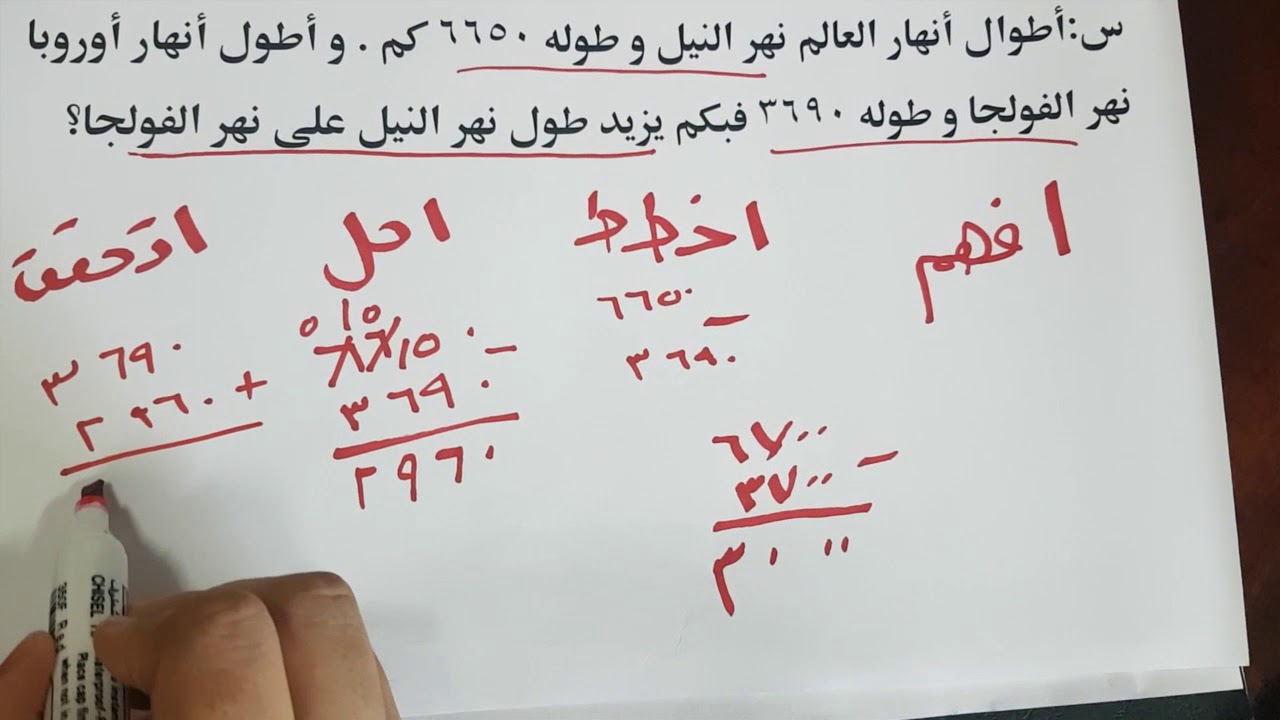 س:أطوال أنهار العالم نهر النيل و طوله ٦٦٥٠ كم . و أطول أنهار أوروبا
نهر الفولجا و طوله ٣٦٩٠ فبكم يزيد طول نهر النيل على نهر الفولجا؟
افهم
اخطط
٦٦٥٠
−
٣٦٩٠
٦٧٠٠
−
٣٧٠٠
٣٠٠٠
احل
٥ ١٥
٦٦١٥٠
−
٣٦٩٠
٢٩٦٠
اتحقق
٣٦٩٠
+
٢٩٦٠
CHISEL